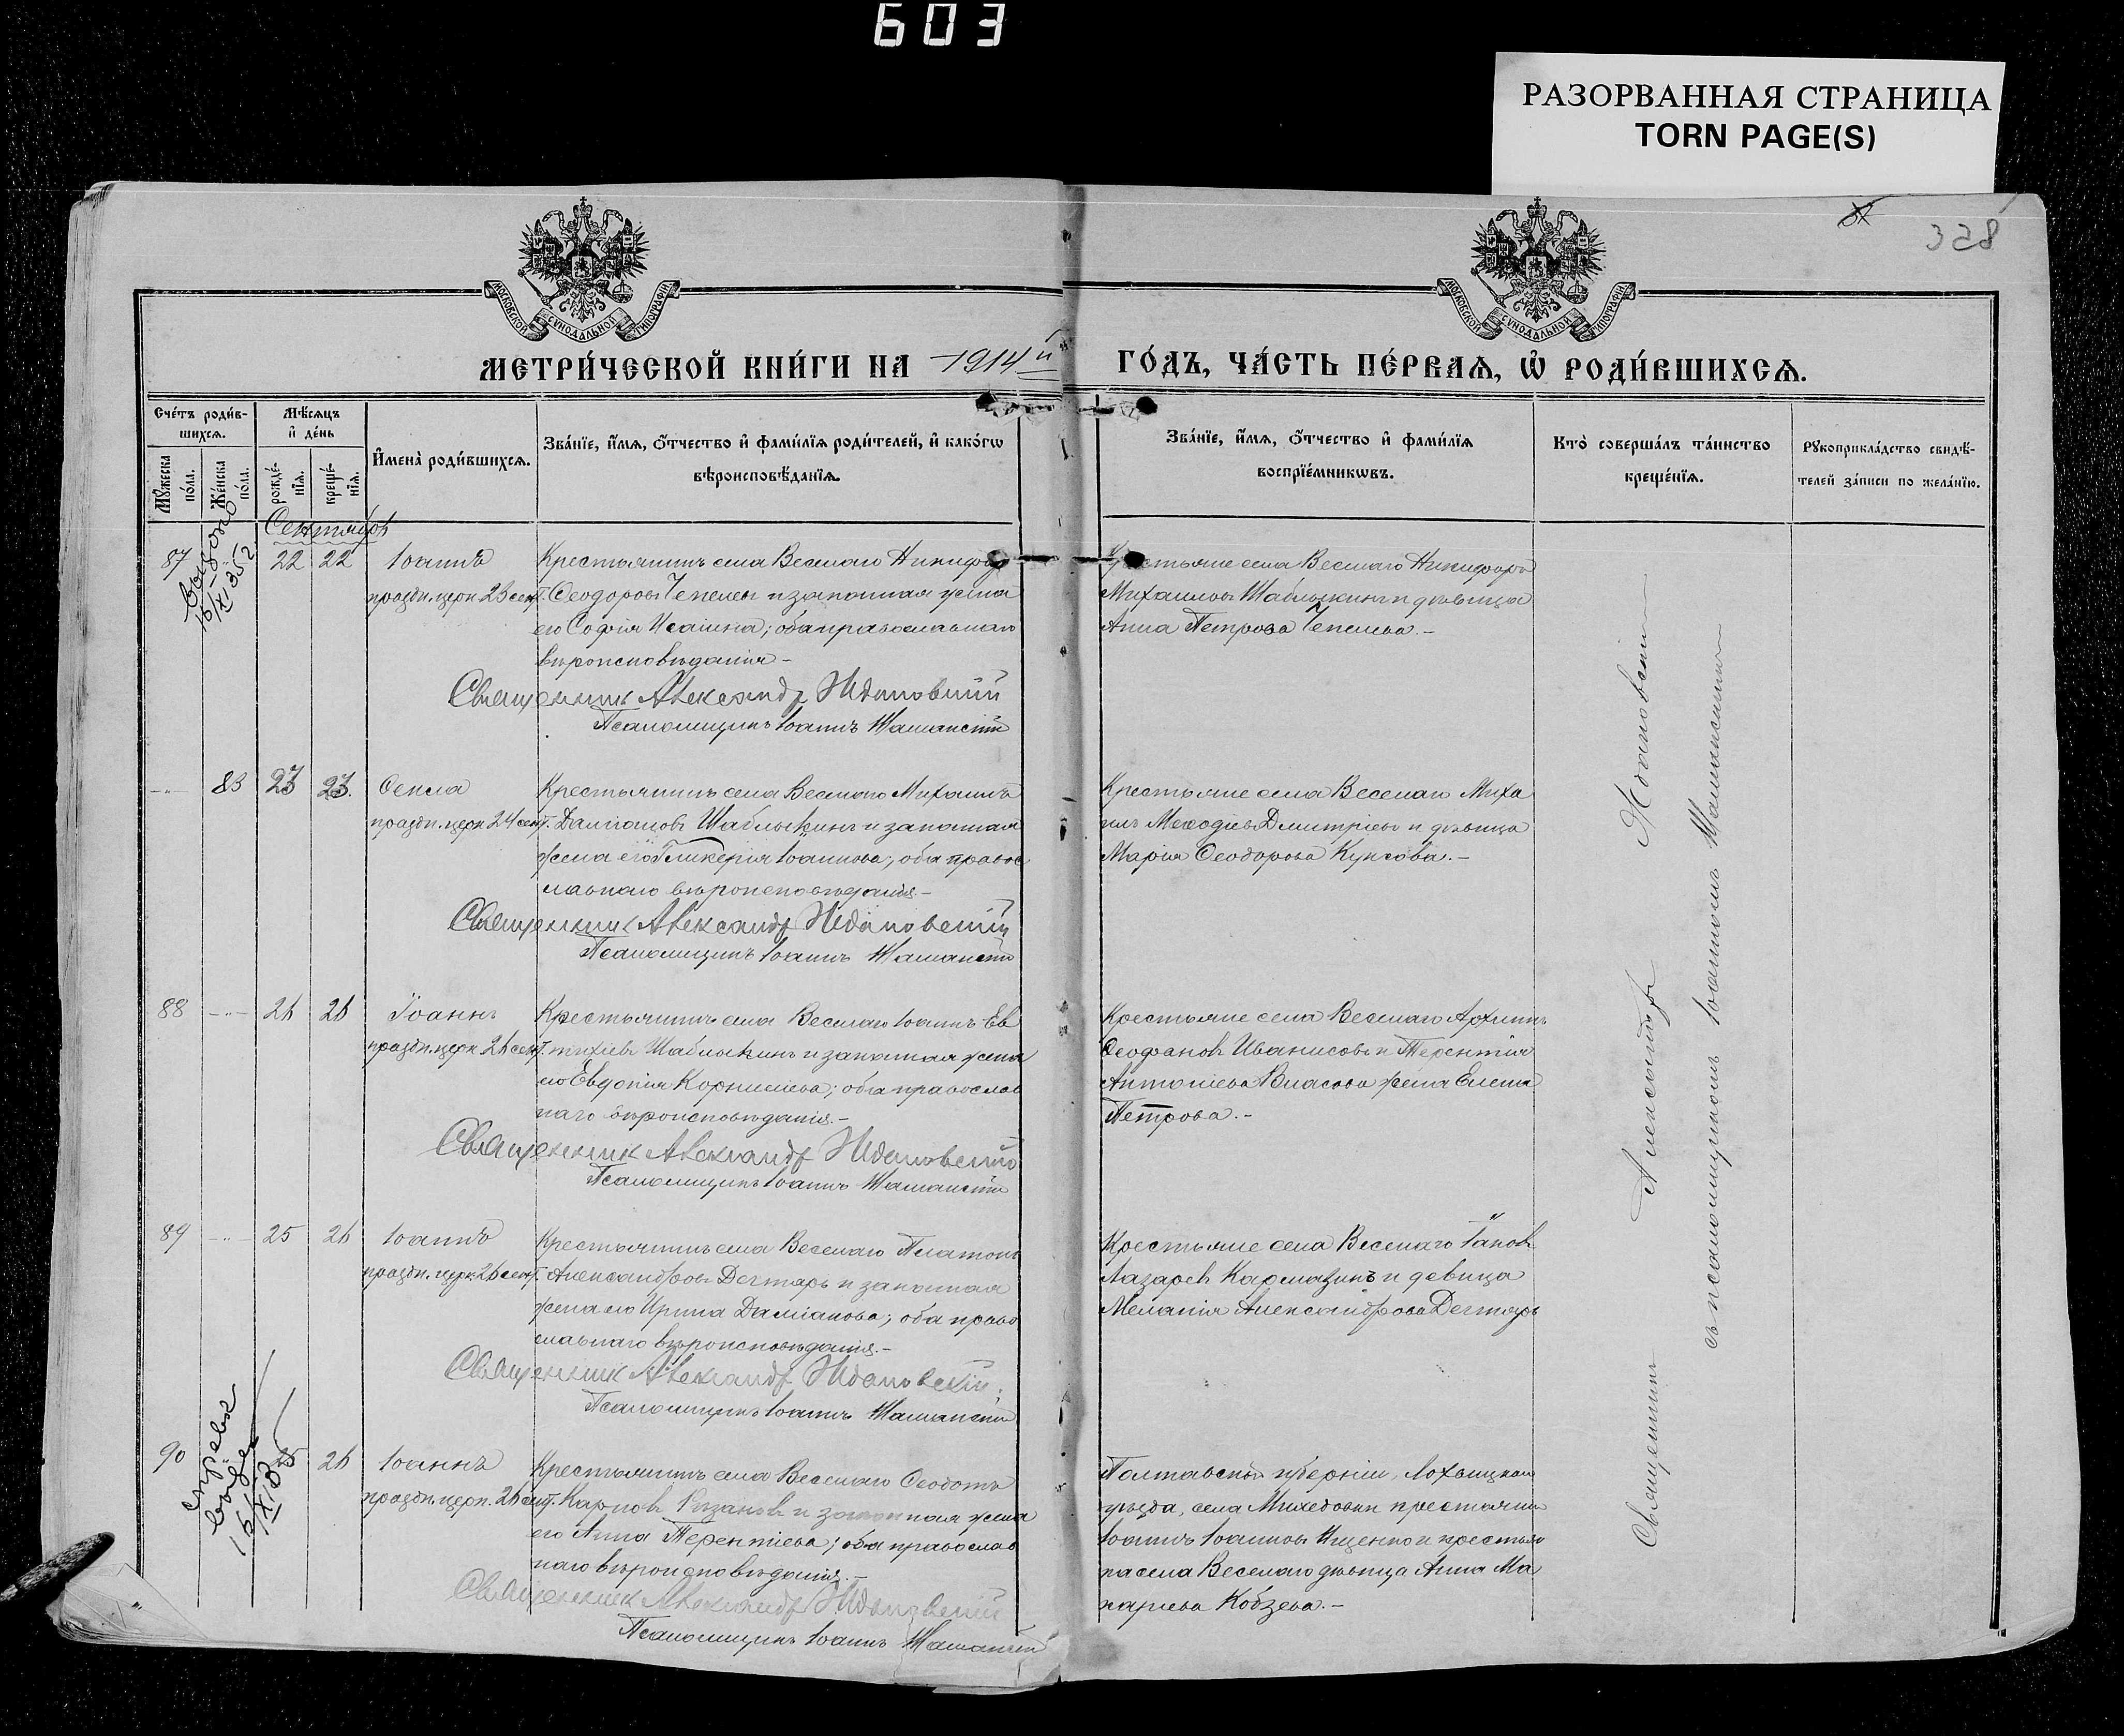 603
РАЗОРВАННАЯ СТРАНИЦА
TORN PAGE(S)
328
МОСКОВСКОЙ СѴНОДАЛЬНОЙ ТИПОГРАФІИ
МОСКОВСКОЙ СѴНОДАЛЬНОЙ ТИПОГРАФІИ
МЕТРИ́ЧЕСКОЙ КНИ́ГИ НА 1914й
ГО́ДЪ, ЧА́СТЬ ПЕ́РВАѦ, Ѡ҆ РОДИ́ВШИХСѦ.
Сче́тъ роди́в-
шихсѧ.
Мꙋ́жеска по́ла.
Же́нска по́ла.
Мѣ́сѧцъ
и҆ де́нь
рожде́-
нїѧ.
креще́-
нїѧ.
И҆мена̀ роди́вшихсѧ.
Зва́нїе, и҆́мѧ, ѻ҆́тчество и҆ фами́лїѧ роди́телей, и҆ како́гѡ
вѣроисповѣ́данїѧ.
Зва́нїе, и҆́мѧ, ѻ҆́тчество и҆ фами́лїѧ
воспрїе́мникѡвъ.
Кто̀ соверша́лъ та́инство
креще́нїѧ.
Рꙋкоприкла́дство свидѣ́-
телей за́писи по жела́нїю.
Сентябрь
87 22 22 Іоаннъ
праздн. церк. 23 сент.
Крестьянинъ села Веселаго Никифоръ
Ѳеодоровъ Чепелевъ и законная жена
его Софія Исаіина; оба православнаго
вѣроисповѣданія –
Священник Александр Ждановский
Псаломщикъ Іоаннъ
Крестьяне села Веселаго Никифоръ
Михаиловъ Шаблыкинъ и дѣвица
Анна Петрова Чепелева. –
83 23 23. Ѳекла
праздн. церк. 24 сент.
Крестьянинъ села Веселаго Михаилъ
Даміановъ Шаблыкинъ и законная
жена его Гликерія Іоаннова; оба правос
лавнаго вѣроисповѣданія. –
Священник Александр Ждановский
Псаломщикъ Іоаннъ
Крестьяне села Веселаго Миха
илъ Меѳодіевъ Дмитріевъ и дѣвица
Марія Ѳеодорова –
88 26 26 Іоаннъ
праздн. церк. 26 сент.
Крестьянинъ села Веселаго Іоаннъ Ев
тихіевъ Шаблыкинъ и законная жена
его Евдокія Корниліева; оба православ
наго вѣроисповѣданія. –
Священник Александр Ждановский
Псаломщикъ Іоаннъ
Крестьяне села Веселаго Архипъ
Ѳеофановъ и Терентія
Антоніева Власова жена Елена
Петрова. –
89 25 26 Іоаннъ
праздн. церк. 26 сент.
Крестьянинъ села Веселаго Платонъ
Александровъ Дегтярь и законная
жена его Ирина Даміанова; оба право
славнаго вѣроисповѣданія. –
Священник Александр Ждановский
Псаломщикъ Іоаннъ
Крестьяне села Веселаго Іаковъ
Лазаревъ Кармазинъ и девица
Меланія Александрова Дегтярь
90 26 Іоаннъ
праздн. церк. 26 сент.
Крестьянинъ села Веселаго Ѳеодотъ
Карповъ и законная жена
его Анна Терентіева; оба православ
наго вѣроисповѣданія. –
Священник Александр Ждановский
Псаломщикъ Іоаннъ
Полтавской губерніи, Лохвицкаго
уѣзда, села крестьянинъ
Іоаннъ Іоанновъ Ищенко и крестьян
ка села Веселаго дѣвица Анна Ма
каріева Кобзева. –
Священникъ Александръ Ждановскій
съ псаломщикомъ Іоанномъ